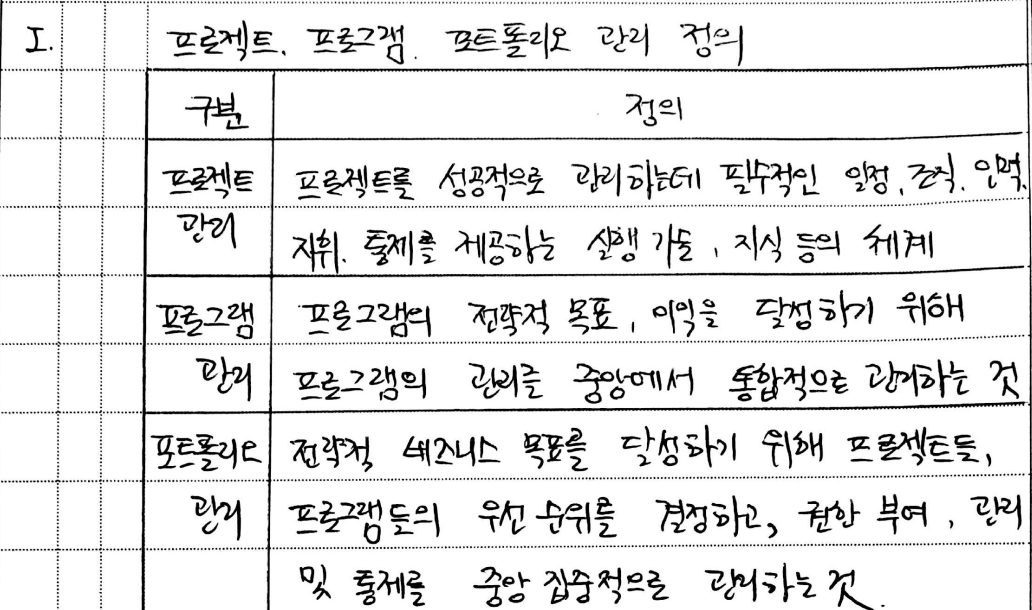 I. 프로젝트. 프로그램. 포트폴리오 관리 정의
구분 정의
프로젝트 프로젝트를 성공적으로 관리하는데 필수적인 일정, 조직. 인력.
관리 지휘. 통제를 제공하는 실행 기술, 지식 등의 체계
프로그램 프로그램의 전략적 목표, 이익을 달성하기 위해
관리 프로그램의 관리를 중앙에서 통합적으로 관리하는 것
포트폴리오 전략적 비즈니스 목표를 달성하기 위해 프로젝트들,
관리 프로그램들의 우선 순위를 결정하고, 권한 부여, 관리
및 통제를 중앙 집중적으로 관리하는 것.